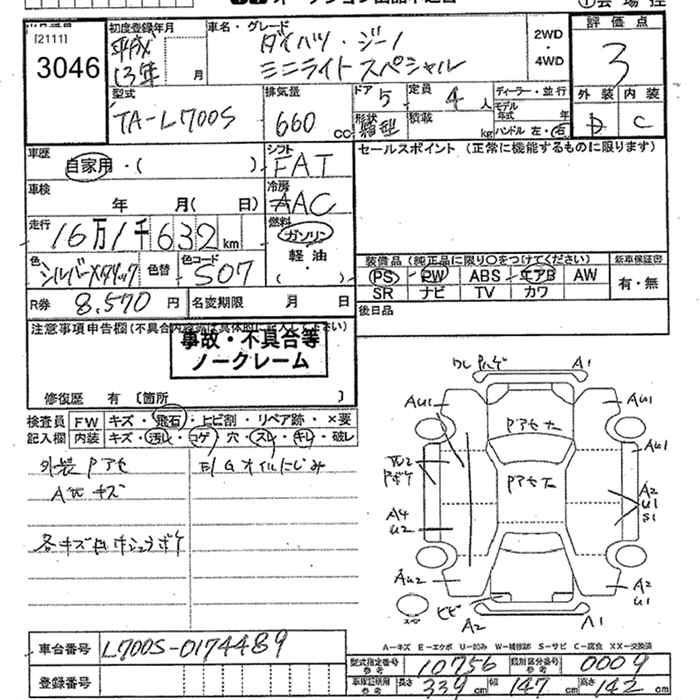 [2111]
3046
初度登録年月
平成
13年 月
車名・グレード
ダイハツ・ジーノ
ミニライトスペシャル
2WD
・
4WD
評価点
3
外装 内装
D C
型式
TA-L700S
排気量
660 cc
ドア 5
形状 箱型
定員 4 人
積載 kg
ディーラー・並行
モデル年式 年
ハンドル 左・右
車歴
自家用・( )
シフト
FAT
セールスポイント (正常に機能するものに限ります)
車検
年 月( 日)
冷房
AAC
走行
16万1千632km
燃料
ガソリン
軽油
( )
色
シルバーメタリック
色替
色コード
S07
装備品 (純正品に限り○をつけてください)
新車保証書
PS PW ABS エアB AW
有・無
SR ナビ TV カワ
R券 8,570 円
名変期限 月 日
後日品
注意事項申告欄
事故・不具合等
ノークレーム
修復歴 有 [箇所 ]
検査員
記入欄
FW キズ・飛石・ヒビ割・リペア跡・×要
内装 キズ・汚レ・コゲ・穴・スレ・キレ・破レ
外装 Pアセ
キズ
E/G オイルにじみ
A1
AU1
AU1
Pアセ大
AU1
U2
Pボケ
Pアセ大
A2
U1
S1
A4
U2
AU2
A2
U1
ヒビ
スペ
A2
A1
車台番号
L700S-0174489
登録番号
A-キズ E-エクボ U-凹み W-補修跡 S-サビ C-腐食 XX-交換済
型式指定番号
参考
10756
類別区分番号
参考
0009
車庫証明用
参考
長さ 339 cm 幅 147 cm 高さ 142 cm